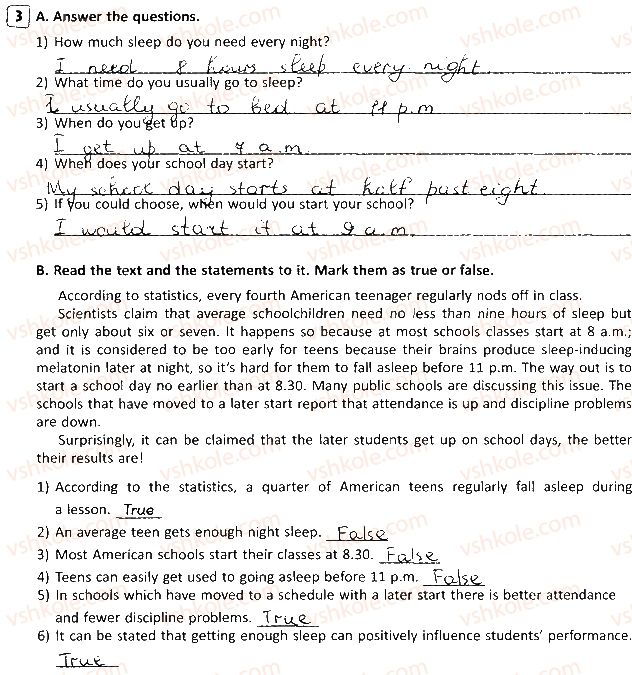 3 A. Answer the questions.
1) How much sleep do you need every night?
I need 8 hours sleep every night.
2) What time do you usually go to sleep?
I usually go to bed at 11 p.m
3) When do you get up?
I get up at 7 a.m.
4) When does your school day start?
My school day starts at half past eight
5) If you could choose, when would you start your school?
I would start it at 9 a.m.
B. Read the text and the statements to it. Mark them as true or false.
According to statistics, every fourth American teenager regularly nods off in class.
Scientists claim that average schoolchildren need no less than nine hours of sleep but
get only about six or seven. It happens so because at most schools classes start at 8 a.m.;
and it is considered to be too early for teens because their brains produce sleep-inducing
melatonin later at night, so it's hard for them to fall asleep before 11 p.m. The way out is to
start a school day no earlier than at 8.30. Many public schools are discussing this issue. The
schools that have moved to a later start report that attendance is up and discipline problems
are down.
Surprisingly, it can be claimed that the later students get up on school days, the better
their results are!
1) According to the statistics, a quarter of American teens regularly fall asleep during
a lesson. True
2) An average teen gets enough night sleep. False
3) Most American schools start their classes at 8.30. False
4) Teens can easily get used to going asleep before 11 p.m. False
5) In schools which have moved to a schedule with a later start there is better attendance
and fewer discipline problems. True
6) It can be stated that getting enough sleep can positively influence students' performance.
True